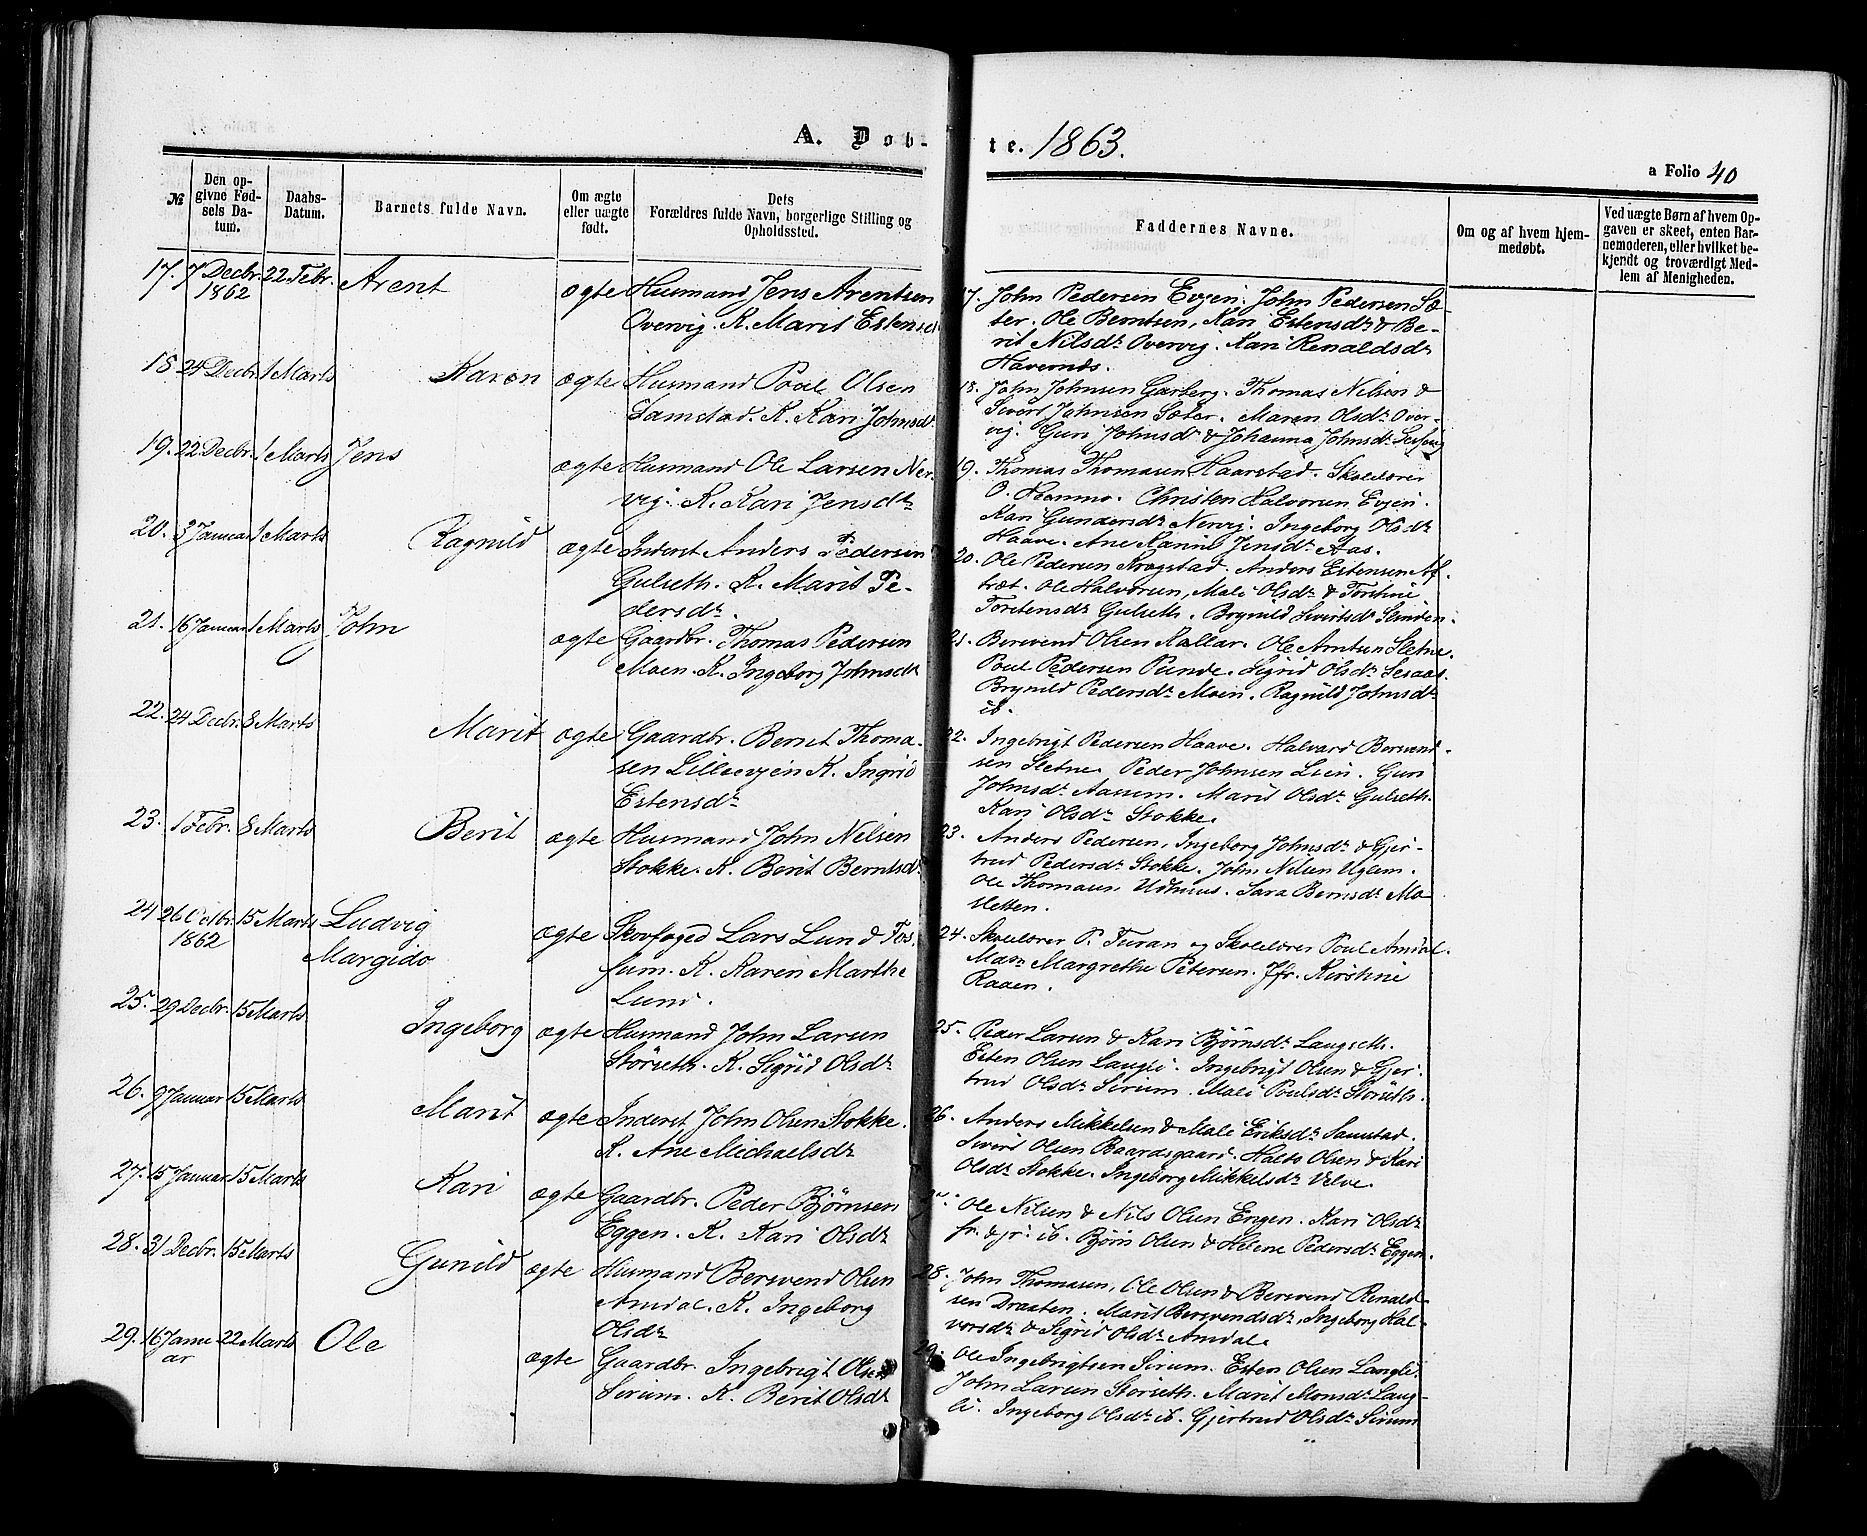 A. Døb-
te. 1863.
a Folio 40
№
Den op-
givne Fød-
sels Da-
tum.
Daabs-
Datum.
Barnets fulde Navn.
Om ægte
eller uægte
født.
Dets
Forældres fulde Navn, borgerlige Stilling og
Opholdssted.
Faddernes Navne.
Om og af hvem hjem-
medøbt.
Ved uægte Børn af hvem Op-
gaven er skeet, enten Bar-
nemoderen, eller hvilket be-
kjendt og troværdigt Med-
lem af Menigheden.
17. 7 Decbr. 22 Febr. Arent ægte Husmand Jens Arentsen
1862
Overvig. K. Marit Estensd
17. John Pedersen Evjen. John Pedersen Sæ-
ter. Ole Berntsen, Kari Estensdr & Be-
rit Nilsdr Overvig. Kari Renaldsdr
18. 24 Decbr. 1 Marts Karen ægte Husmand Poul Olsen
Samstad. K. Kari Johnsd.
18. John Johnsen Garberg. Thomas Nilsen &
Sivert Johnsen Sæter. Maren Olsdr Over-
vig. Guri Johnsdr & Johanna Johnsdr
19. 22 Decbr. 1 Marts Jens ægte Husmand Ole Larsen Ner-
vig. K. Kari Jensdr
19. Thomas Thomasen Haarstad. Skolelærer
O. Hammo. Christen Halvorsen Evjen.
Kari Gundersdr Nervig. Ingeborg Olsdr
Haave. Ane Karine Jensdr Aas.
20. 3 Januar 1 Marts Ragnild ægte Inderst Anders Pedersen
Gulseth. K. Marit Pe-
dersdr.
20. Ole Pedersen Krogstad. Anders Estensen Af-
træt. Ole Halvorsen, Mali Olsdr & Torstine
Torstensdr Gulseth. Brynild Sivertsdr
21. 16 Januar 1 Marts John ægte Gaardbr. Thomas Pedersen
Moen. K. Ingeborg Johnsdr
21. Bersvend Olsen Kallar. Ole Arntsen Sletne.
Poul Pedersen Punde. Sigrid Olsdr Sesaas.
Brynild Pedersdr Moen. Ragnild Johnsdr
ib.
22. 24 Decbr. 8 Marts Marit ægte Gaardbr. Bernt Thoma-
sen Lilleevjen K. Ingrid
Estensdr
22. Ingebrigt Pedersen Haave. Halvard Bersvend-
sen Sletne. Peder Johnsen Lien. Guri
Johnsdr Aasum. Marit Olsdr Gulseth.
Kari Olsdr Stokke.
23. 1 Febr. 8 Marts Berit ægte Husmand John Nilsen
Stokke. K. Berit Berntsd.
23. Anders Pedersen, Ingeborg Johnsdr & Gjer-
trud Pedersdr Stokke. John Nilsen Uglem.
Ole Thomasen Udhuus. Sara Berntsdr Mo-
sletten.
24. 26 Octbr. 15 Marts Ludvig
1862
Margido
ægte Skovfoged Lars Lund Fos-
sum. K. Karen Marthe
Lund.
24. Skolelærer P. Turan og Skolelærer Poul Amdal.
Mad. Margrethe Petersen. Jfr. Kirstine
Raaen.
25. 29 Decbr. 15 Marts Ingeborg ægte Husmand John Larsen
Storseth. K. Sigrid Olsdr
25. Peder Larsen & Kari Bjørnsdr Langseth.
Esten Olsen Langli. Ingebrigt Olsen & Gjer-
trud Olsdr Sirum. Mali Poulsdr Storseth.
26. 9 Januar 15 Marts Marit ægte Inderst John Olsen Stokke.
K. Ane Michaelsdr
26. Anders Mikkelsen & Mali Eriksdr Samstad.
Sivert Olsen Baardsgaard. Halto Olsen & Kari
Olsdr Stokke. Ingeborg Mikkelsdr Velve.
27. 15 Januar 15 Marts Kari ægte Gaardbr. Peder Bjørnsen
Eggen. K. Kari Olsdr
Ole Nilsen & Nils Olsen Engen. Kari Olsdr
fr. & jr. ib. Bjørn Olsen & Helene Pedersdr Eggen.
28. 31 Decbr. 15 Marts Gunild ægte Husmand Bersvend Olsen
Amdal. K. Ingeborg
Olsdr
28. John Thomasen, Ole Olsen & Bersvend Renald-
sen Draxten. Marit Bersvendsdr, Ingeborg Hal-
vorsdr & Sigrid Olsdr Amdal.
29. 16 Janu- 22 Marts Ole
ar
ægte Gaardbr. Ingebrigt Olsen
Sirum. K. Berit Olsdr
29. Ole Ingebrigtsen Sirum. Esten Olsen Langli.
John Larsen Storseth. Marit Monsdr Lang-
li. Ingeborg Olsdr ib. Gjertrud Olsdr Sirum